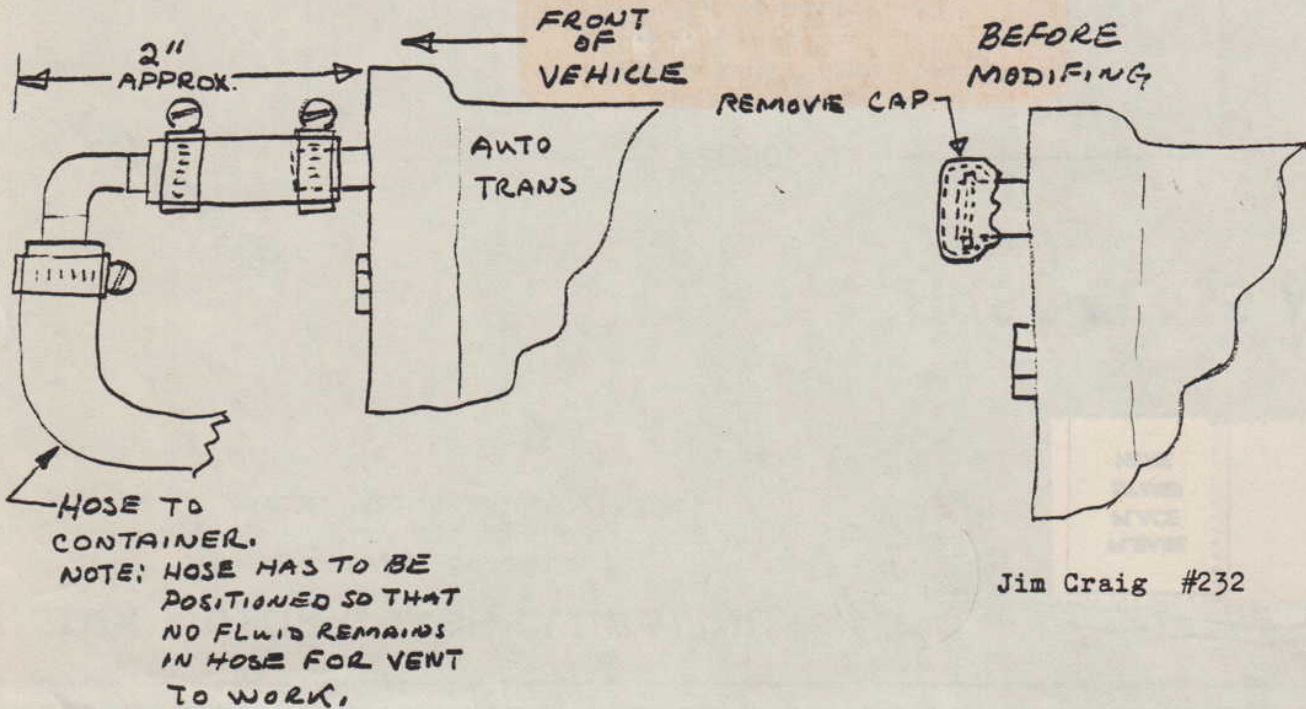 2"
APPROX.
FRONT
OF
VEHICLE
AUTO
TRANS
HOSE TO
CONTAINER.
NOTE: HOSE HAS TO BE
POSITIONED SO THAT
NO FLUID REMAINS
IN HOSE FOR VENT
TO WORK.
BEFORE
MODIFING
REMOVE CAP
Jim Craig #232